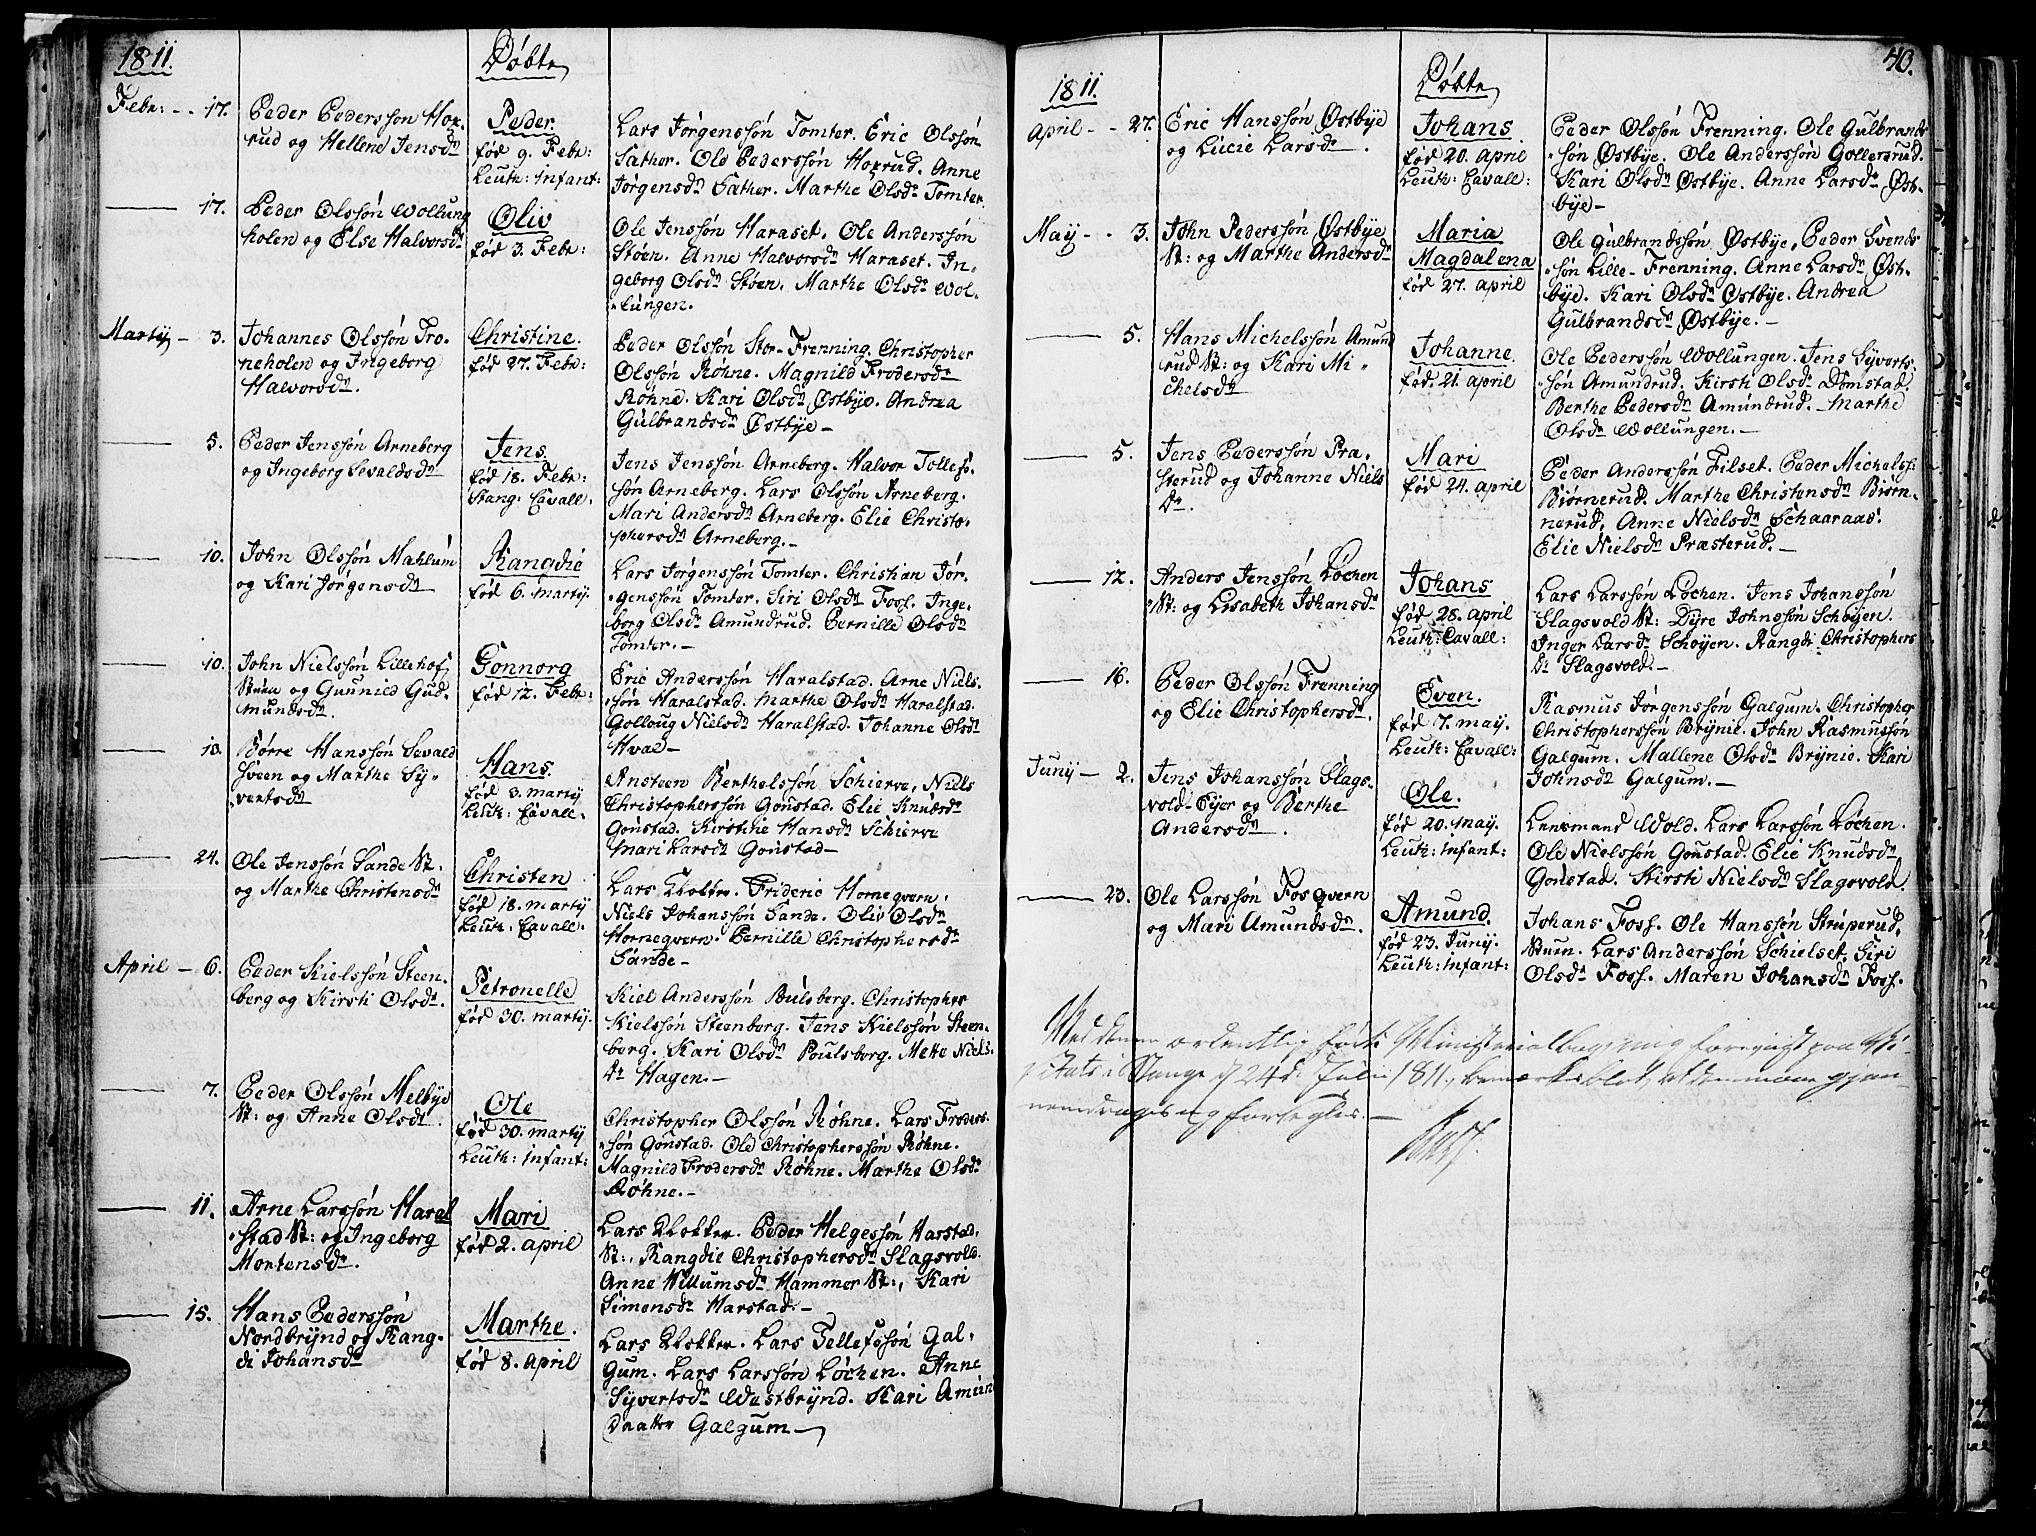 1811.
Døbte
Febr: - - 17.
Peder Pederssøn Hox-
rud og Hellene Jensdr
Peder
fød 9. Febr:
Leuth: Infant:
Lars Jørgenssøn Tomter. Eric Olssøn
Sather. Ole Pederssøn Hoxrud. Anne
Jørgensdr Sather. Marthe Olsdr Tomter.
17.
Peder Olssøn Wollung
holen og Else Halvorsdr
Oliv
fød 3. Febr:
Ole Jenssøn Haraset. Ole Anderssøn
Støen. Anne Halvorsdr Haraset. In-
geborg Olsdr Støen. Marthe Olsdr Wol-
lungen.
Martij - 3.
Johannes Olssøn Tro-
neholen og Ingeborg
Halvorsdr.
Christine.
fød 27. Febr:
Peder Olssøn Stor-Frenning. Christopher
Olssøn Røhne. Magnild Frodersdr
Røhne. Kari Olsdr Østbye. Andrea
Gulbrandsdr Østbye -
5.
Peder Jenssøn Arneberg
og Ingeborg Sevaldsdr
Jens
fød 18. Febr:
Stang: Cavall.
Jens Jenssøn Arneberg. Halvor Tollefs-
søn Arneberg. Lars Olssøn Arneberg.
Mari Andersdr Arneberg. Elie Christo-
phersdr Arneberg. -
10.
John Olssøn Mahlum
og Kari Jørgensdr
Rangdie
fød 6. martij.
Lars Jørgenssøn Tomter. Christian Jør-
genssøn Tomter. Siri Olsdr Foss. Inge-
borg Olsdr Amundrud. Pernille Olsdr
Tomter. -
10.
John Nielssøn Lillehof
Stuen og Gunnild Gud-
mundsdr.
Gonnorg
fød 12. Febr:
Eric Anderssøn Haralstad. Arne Niels-
søn Haralstad. Marthe Olsdr Haralstad.
Golloug Nielsdr Haralstad. Johanne Olsdr
Hvae -
10.
Børre Hanssøn Sevald
Sveen og Marthe Sy-
vertsdr
Hans.
fød 3. martij
Leuth: Cavall.
Ansteen Berthelssøn Schierve. Niels
Christopherssøn Gonstad. Elie Knudsdr
Gonstad. Kirstine Hansdr Schierve
Mari Larsdr Gonstad -
24.
Ole Jenssøn Sande St:
og Marthe Christensdr
Christen
fød 18. martij
Leuth: Cavall.
Lars Klokker. Frideric Horneqvern.
Niels Johanssøn Sande. Oliv Olsdr
Horneqvern. Pernille Christophersdr
Sande -
April - 6.
Peder Kielssøn Steen-
berg og Kirsti Olsdr.
Petronelle
fød 30. martij.
Kiel Anderssøn Bulsberg. Christopher
Kielssøn Steenberg. Jens Kielssøn Steen-
berg. Kari Olsdr Poulsberg. Mette Niels-
dr Hagen. -
7.
Peder Olssøn Melbye
St: og Anne Olsdr.
Ole
fød 30. martij
Leuth: Infant:
Christopher Olssøn Røhne. Lars Froders-
søn Gonstad. Ole Christopherssøn Røhne.
Magnild Frodersdr Røhne. Marthe Olsdr
Røhne. -
11.
Arne Larssøn Haral
stad St: og Ingeborg
Mortensdr.
Mari
fød 2. april
Lars Klokker. Peder Helgessøn Harstad
St:, Rangdie Christophersdr Slagsvold.
Anne Willumsdr Hammer St:, Kari
Simensdr Harstad. -
15.
Hans Pederssøn
Nordbrynd og Rang-
di Johansdr
Marthe.
fød 8. April
Lars Klokker. Lars Tellefssøn Gal-
gum. Lars Larssøn Løchen. Anne
Syvertsdr Westbrynd. Kari Amun
daatter Galgum -
40.
1811.
Døbte
April - - 27.
Eric Hanssøn Østbye
og Lucie Larsdr.
Johans
fød 20. April
Leuth: Cavall:
Peder Olssøn Frenning. Ole Gulbrands
søn Østbye. Ole Anderssøn Gollersrud.
Kari Olsdr Østbye. Anne Larsdr Øst-
bye -
May - - 3.
John Pederssøn Østbye
St: og Marthe Andersdr
Maria
Magdalena
fød 27. april
Ole Gulbrandssøn Østbye. Peder Svends
søn Lille-Frenning. Anne Larsdr Øst-
bye. Kari Olsdr Østbye. Andrea
Gulbrandsdr Østbye. -
5.
Hans Michelssøn Amund
rud St: og Kari Mi-
chelsdr
Johanne.
fød 21. april
Ole Pederssøn Wollungen. Jens Syverts-
søn Amundrud. Kirsti Olsdr Domstad.
Berthe Pedersdr Amundrud. Marthe
Olsdr Wollungen. -
5.
Jens Pederssøn Præ-
sterud og Johanne Niels
dr.
Mari
fød 24. april
Peder Anderssøn Filset. Peder Michelss:
Biørnerud. Marthe Christensdr Biørn-
nerud. Anne Nielsdr Schaaraas.
Elie Nielsdr Præsterud. -
12.
Anders Jenssøn Løchen
St: og Lisabeth Johansdr
Johans
fød 28. april
Leuth: Cavall:
Lars Larssøn Løchen. Jens Johanssøn
Slagsvold St: Dyre Johnssøn Schøyen.
Inger Larsdr Schøyen. Rangdi Christophers
dr Slagsvold. -
16.
Peder Olssøn Frenning
og Elie Christophersdr.
Even.
fød 7. may.
Leuth: Cavall:
Rasmus Jørgenssøn Galgum. Christopher
Christopherssøn Brynie. John Rasmussøn
Galgum. Mallene Olsdr Brynie. Kari
Johnsdr Galgum. -
Junij - 2.
Jens Johanssøn Slags-
vold-Eyer og Berthe
Andersdr.
Ole.
fød 20. may.
Leuth: Infant:
Lensmand Wold. Lars Larssøn Løchen.
Ole Nielssøn Gonstad. Elie Knudsdr
Gonstad. Kirsti Nielsdr Slagsvold.
23.
Ole Larssøn Fosqvern
og Mari Amundsdr.
Amund
fød 23. Junij.
Leuth: Infant:
Johans Foss. Ole Hanssøn Struperud,
Stuen. Lars Anderssøn Schielset. Siri
Olsdr Foss. Maren Johansdr Foss.
Ved denne ordentlig førte Ministerialbog, mig forevist paa Vi-
sitats i Stange d 24de Julii 1811, bemærkes blot, at den maae gjen-
nemdrages og forsegles. -